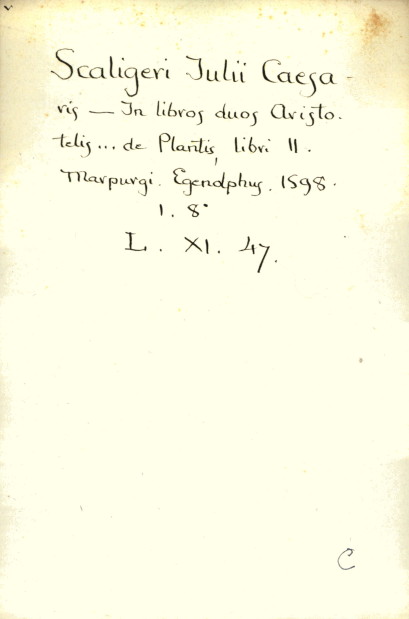 Scaligeri Iulii Caesa-
ris — In libros duos Aristo.
telis... de Plantis, libri II.
Marpurgi. Egenolphus. 1598.
1. 8°
L. XI. 47.
C